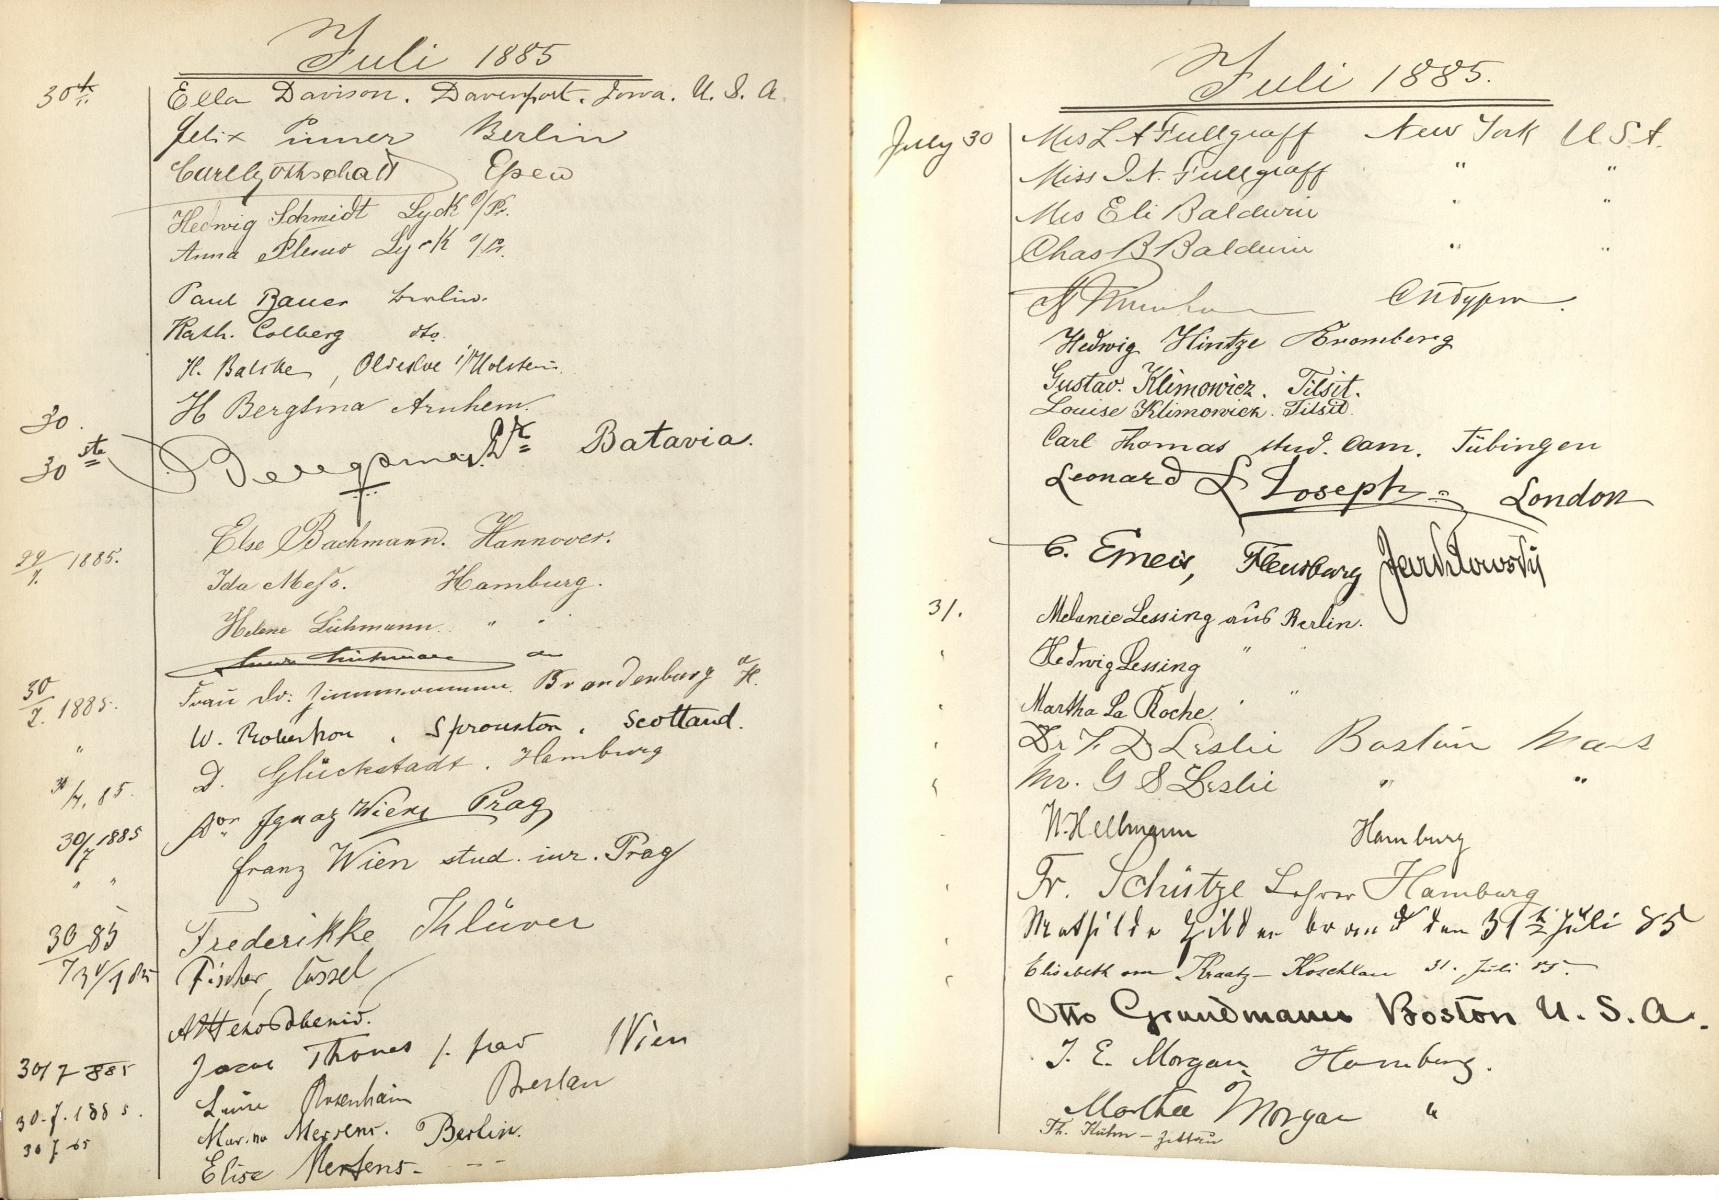 Juli 1885
30t. Ella Davison. Davenport. Iowa. U. S. A.
Felix Pinner Berlin
Carl Gottschalk Essen
Hedwig Schmidt Lyck O/Pr.
Anna Lyck O/Pr.
Paul Bauer Berlin.
Kath. Colberg dto.
H. , Oldesloe i/Holstein
30. H Bergsma Arnhem.
30 ste Batavia.
Else Bachmann. Hannover.
29/7. 1885. Ida Mess. Hamburg.
Helene Lühmann. " "
30/7. 1885. Frau Dr: Zimmermann. Brandenburg a/H.
" W. Robertson, Sprouston, Scotland.
30/7. 85. D. Glückstadt. Hamburg
30/7 1885 Dor Ignaz Wien Prag
" " Franz Wien stud. iur. Prag
30/7 85 Frederikke Klüver
Fischer, Cassel
30/7 885 Thomas Wien
30.7.1885. Rosenhain Breslau
30 7 85 Mertens. Berlin.
Elise Mertens - - -
Juli 1885.
July 30 Mrs L A Fullgraff New York U S A.
Miss I. N. Fullgraff " "
Mrs Eli Baldwin " "
Chas B Baldwin " "
Hedwig Hintze Bromberg
Gustav. Klimowicz. Tilsit.
Louise Klimowicz. Tilsit.
Carl Thomas stud. cam. Tübingen
Leonard L Joseph = London
C. Emeis, Flensburg
31. Melanie Lessing aus Berlin.
Hedwig Lessing " "
Martha La Roche. ' "
Dr F. D Leslie Boston Mass
Mr. G S Leslie " "
W. Hellmann Hamburg
Fr. Schütze Lehrer Hamburg
Mathilde Hildebrandt den 31 Juli 85
Elisabeth am 31. Juli 85.
Otto Grundmann Boston U. S. A.
J. E. Morgan Hamburg.
Marthee Morgan "
Th. Kühn - Zittau